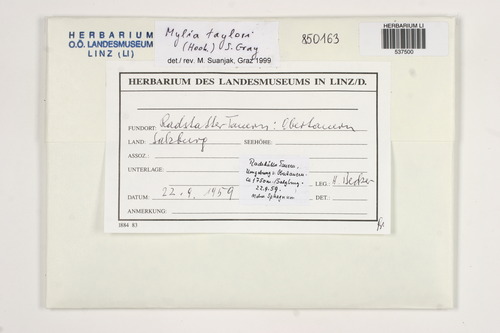 HERBARIUM
O.Ö. LANDESMUSEUM
LINZ (LI)
Mylia taylori
(Hook.) S. Gray
det / rev. M. Suanjak, Graz 1999
850163
HERBARIUM LI
537500
HERBARIUM DES LANDESMUSEUMS IN LINZ/D.
FUNDORT: Radstädter Tauern: Obertauern
LAND: Salzburg SEEHÖHE:
ASSOZ.:
UNTERLAGE:
Radstädter Tauern,
Umgebung v. Obertauern
1750m Salzburg
22.9.59.
Sphagnum
LEG.: H. Becker
DATUM: 22. 9. 1959 DET.:
ANMERKUNG:
1884 83